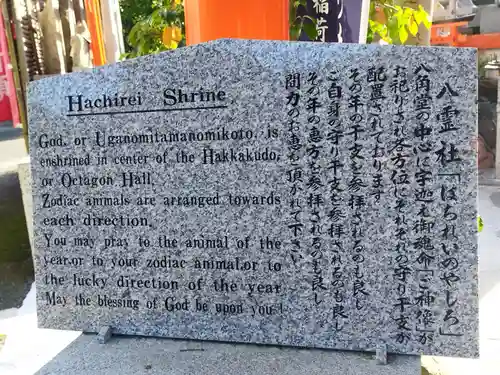 Hachirei Shrine
God, or Uganomitamanomikoto, is
enshrined in center of the Hakkakudo,
or Octagon Hall.
Zodiac animals are arranged towards
each direction.
You may pray to the animal of the
year,or to your zodiac animal,or to
the lucky direction of the year
May the blessing of God be upon you!
八霊社「はちれいのやしろ」
八角堂の中心に宇迦之御魂命「ご神像」が
お祀りされ各方位にそれぞれの守り干支が
配置されております
その年の干支を参拝されるのも良し
ご自身の守り干支を参拝されるのも良し
その年の恵方を参拝されるのも良し
間力のお恵を頂かれて下さい
稲荷